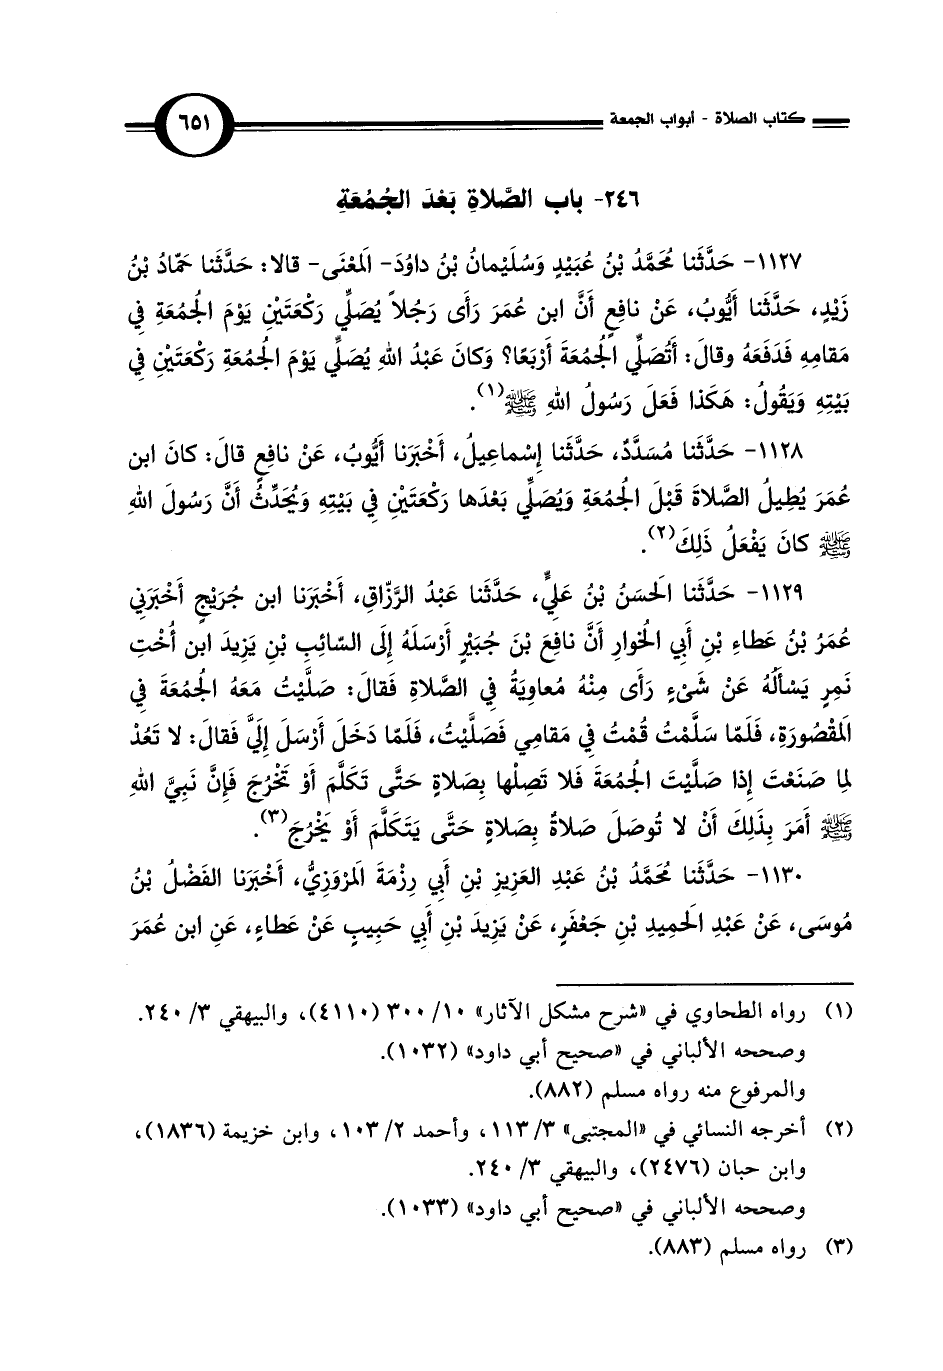 كتاب الصلاة - أبواب الجمعة
٦٥١
٢٤٦- باب الصَّلاةِ بَعْدَ الجُمُعَةِ
١١٢٧- حَدَّثَنا مُحَمَّدُ بْنُ عُبَيْدٍ وَسُلَيْمانُ بْنُ داوُدَ- المَعْنَى- قالا: حَدَّثَنا حَمّادُ بْنُ
زَيْدٍ، حَدَّثَنا أَيُّوبُ، عَنْ نافِعٍ أَنَّ ابن عُمَرَ رَأى رَجُلاً يُصَلِّي رَكْعَتَيْنِ يَوْمَ الجُمُعَةِ فِي
مَقامِهِ فَدَفَعَهُ وقالَ: أَتُصَلِّي الجُمُعَةَ أَرْبَعًا؟ وَكانَ عَبْدُ اللهِ يُصَلِّي يَوْمَ الجُمُعَةِ رَكْعَتَيْنِ فِي
بَيْتِهِ وَيَقُولُ: هَكَذا فَعَلَ رَسُولُ اللهِ ﷺ(١).
١١٢٨- حَدَّثَنا مُسَدَّدٌ، حَدَّثَنا إِسْماعِيلُ، أَخْبَرَنا أَيُّوبُ، عَنْ نافِعٍ قالَ: كانَ ابن
عُمَرَ يُطِيلُ الصَّلاةَ قَبْلَ الجُمُعَةِ وَيُصَلِّي بَعْدَها رَكْعَتَيْنِ فِي بَيْتِهِ وَيُحَدِّثُ أَنَّ رَسُولَ اللهِ
ﷺ كانَ يَفْعَلُ ذَلِكَ(٢).
١١٢٩- حَدَّثَنا الحَسَنُ بْنُ عَلِيٍّ، حَدَّثَنا عَبْدُ الرَّزّاقِ، أَخْبَرَنا ابن جُرَيْجٍ أَخْبَرَنِي
عُمَرُ بْنُ عَطاءِ بْنِ أَبِي الخُوارِ أَنَّ نافِعَ بْنَ جُبَيْرٍ أَرْسَلَهُ إِلَى السّائِبِ بْنِ يَزِيدَ ابن أُخْتِ
نَمِرٍ يَسْأَلُهُ عَنْ شَيْءٍ رَأى مِنْهُ مُعاوِيَةُ فِي الصَّلاةِ فَقالَ: صَلَّيْتُ مَعَهُ الجُمُعَةَ فِي
المَقْصُورَةِ، فَلَمّا سَلَّمْتُ قُمْتُ فِي مَقامِي فَصَلَّيْتُ، فَلَمّا دَخَلَ أَرْسَلَ إِلَيَّ فَقالَ: لا تَعُدْ
لِما صَنَعْتَ إِذا صَلَّيْتَ الجُمُعَةَ فَلا تَصِلْها بِصَلاةٍ حَتَّى تَكَلَّمَ أَوْ تَخْرُجَ فَإِنَّ نَبِيَّ اللهِ
ﷺ أَمَرَ بِذَلِكَ أَنْ لا تُوصَلَ صَلاةٌ بِصَلاةٍ حَتَّى يَتَكَلَّمَ أَوْ يَخْرُجَ(٣).
١١٣٠- حَدَّثَنا مُحَمَّدُ بْنُ عَبْدِ العَزِيزِ بْنِ أَبِي رِزْمَةَ المَرْوَزِيُّ، أَخْبَرَنا الفَضْلُ بْنُ
مُوسَى، عَنْ عَبْدِ الحَمِيدِ بْنِ جَعْفَرٍ، عَنْ يَزِيدَ بْنِ أَبِي حَبِيبٍ عَنْ عَطاءٍ، عَنِ ابن عُمَرَ
(١) رواه الطحاوي في «شرح مشكل الآثار» ١٠/ ٣٠٠ (٤١١٠)، والبيهقي ٣/ ٢٤٠.
وصححه الألباني في «صحيح أبي داود» (١٠٣٢).
والمرفوع منه رواه مسلم (٨٨٢).
(٢) أخرجه النسائي في «المجتبى» ٣/ ١١٣، وأحمد ٢/ ١٠٣، وابن خزيمة (١٨٣٦)،
وابن حبان (٢٤٧٦)، والبيهقي ٣/ ٢٤٠.
وصححه الألباني في «صحيح أبي داود» (١٠٣٣).
(٣) رواه مسلم (٨٨٣).